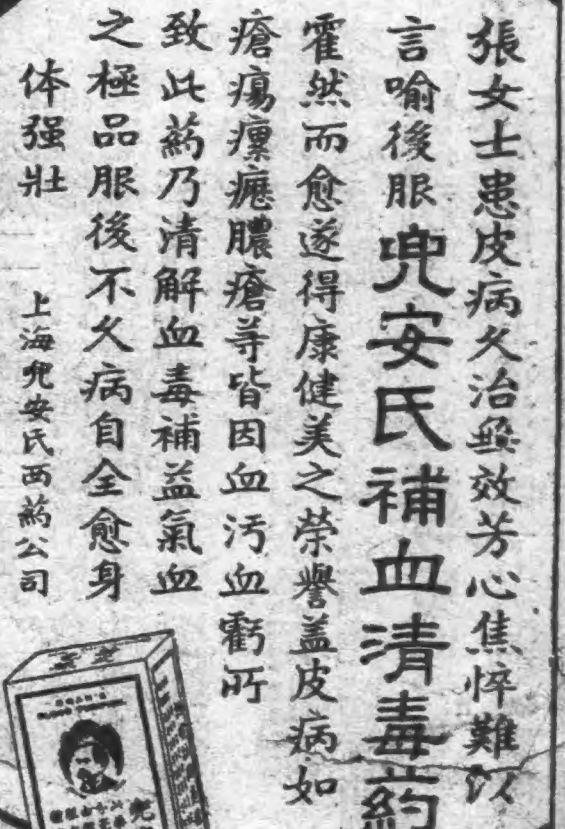 張女士患皮病久治無效芳心焦悴難以
言喻後服兜安氏補血清毒药
霍然而愈遂得康健美之荣譽盖皮病如
瘡瘍瘰癧膿瘡等皆因血污血虧所
致此葯乃清解血毒補益氣血
之極品服後不久病自全愈身
体强壯
上海兜安氏西葯公司